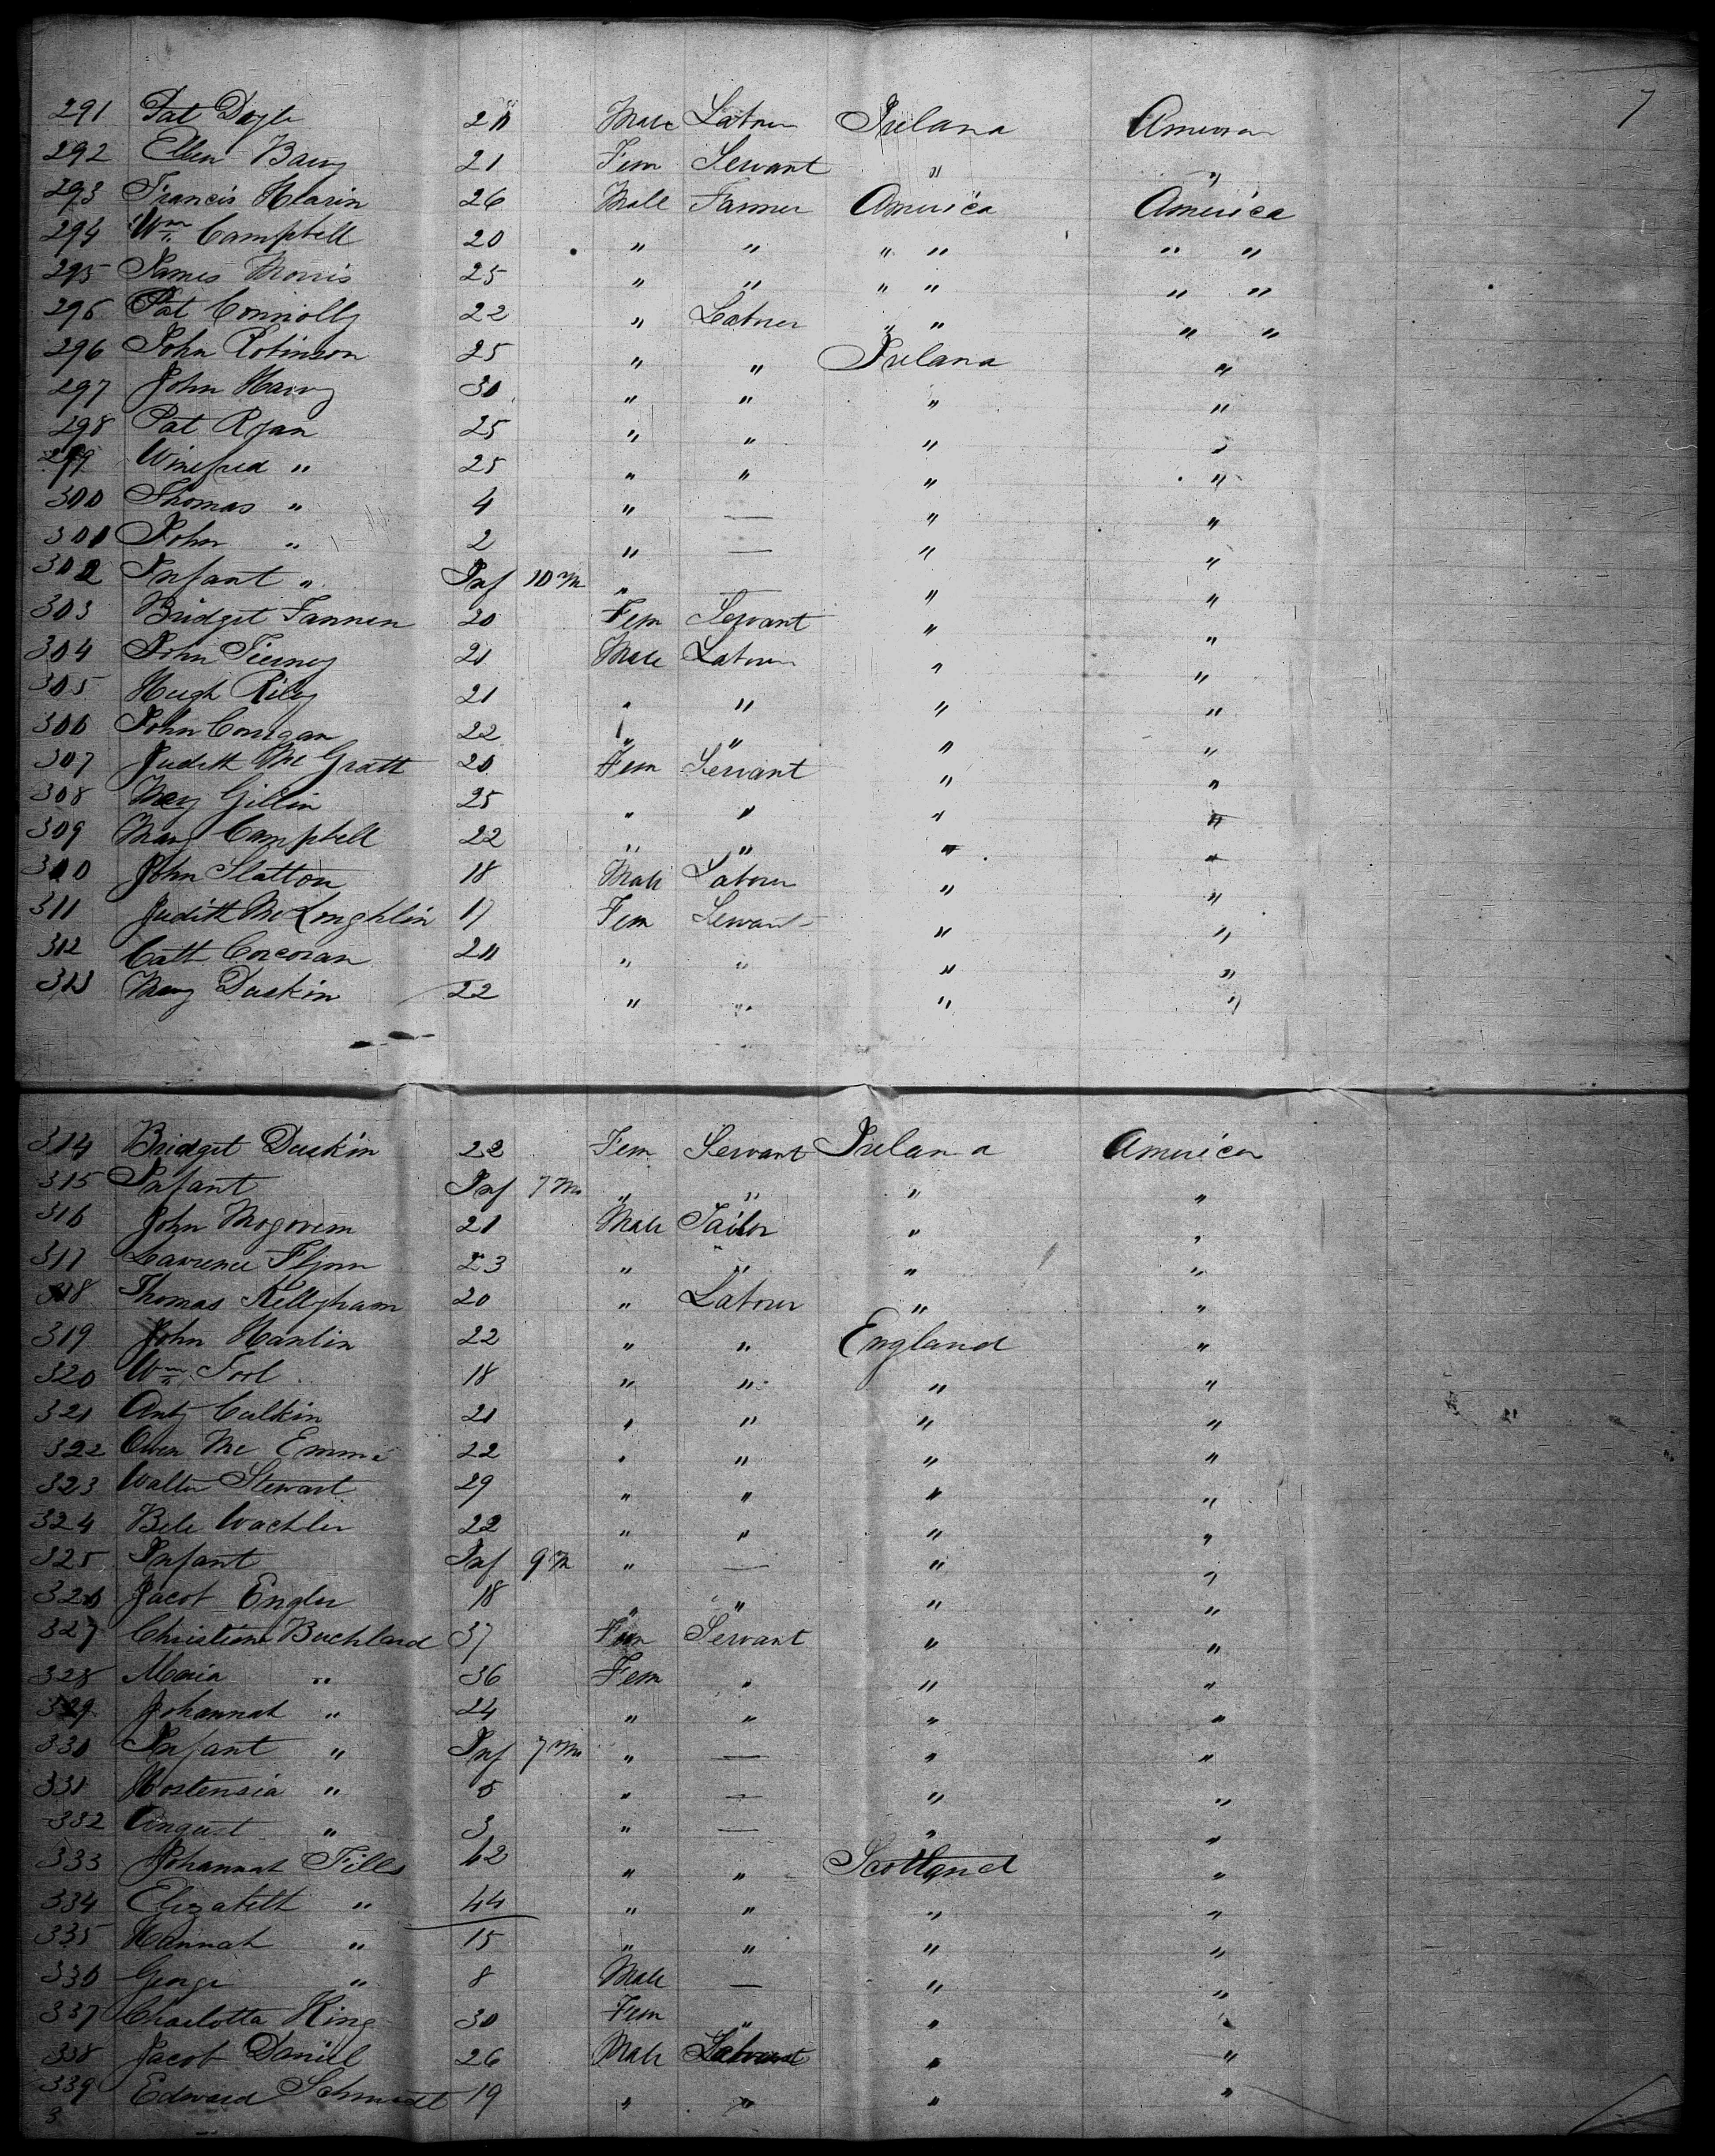 7
291 Pat Doyle 20 Male Labour Ireland America
292 Ellen Barry 21 Fem Servant " "
293 Francis Hearin 26 Male Farmer America America
294 Wm Campbell 20 " " " " " "
295 James Morris 25 " " " " " "
296 Pat Connolly 22 " Labourer " " " "
296 John Robinson 25 " " Ireland "
297 John Harvey 30 " " " "
298 Pat Ryan 25 " " " "
299 Winefred " 25 " " " "
300 Thomas " 4 " — " "
301 John " 2 " — " "
302 Infant " Inf 10 M " — " "
303 Bridget Fannen 20 Fem Servant " "
304 John Tierney 20 Male Labour " "
305 Hugh Riley 21 " " " "
306 John Corrigan 22 " " " "
307 Judith Mc Grath 20 Fem Servant " "
308 Mary Gillin 25 " " " "
309 Mary Campbell 22 " " " "
310 John Slatton 18 Male Labour " "
311 Judith McLoughlin 17 Fem Servant " "
312 Cath Corcoran 20 " " " "
313 Mary Duskin 22 " " " "
314 Bridget Duskin 22 Fem Servant Ireland America
315 Infant Inf 7 Mo " " " "
316 John Mogovern 21 Male Tailor " "
317 Lawrence Flynn 23 " " " "
318 Thomas Kellgham 20 " Labour " "
319 John Hanlin 22 " " England "
320 Wm Tool 18 " " " "
321 Anty Culkin 21 " " " "
322 Owen Mc 22 " " " "
323 Walter Stewart 29 " " " "
324 Bele Wachler 22 " " " "
325 Infant Inf 9 M " — " "
326 Jacob Engler 18 " " " "
327 Christiana Buchland 37 Fem Servant " "
328 Maria " 36 Fem " " "
329 Johannah " 24 " " " "
330 Infant " Inf 7 Mo " — " "
331 Hostensia " 5 " — " "
332 August " 3 " — " "
333 Johannah Fills 42 " " Scotland "
334 Elizabeth " 44 " " " "
335 Hannah " 15 " " " "
336 George " 8 Male — " "
337 Charlotta King 30 Fem " " "
338 Jacob Daniel 26 Male " "
339 Edward Schmidt 19 " " " "
3